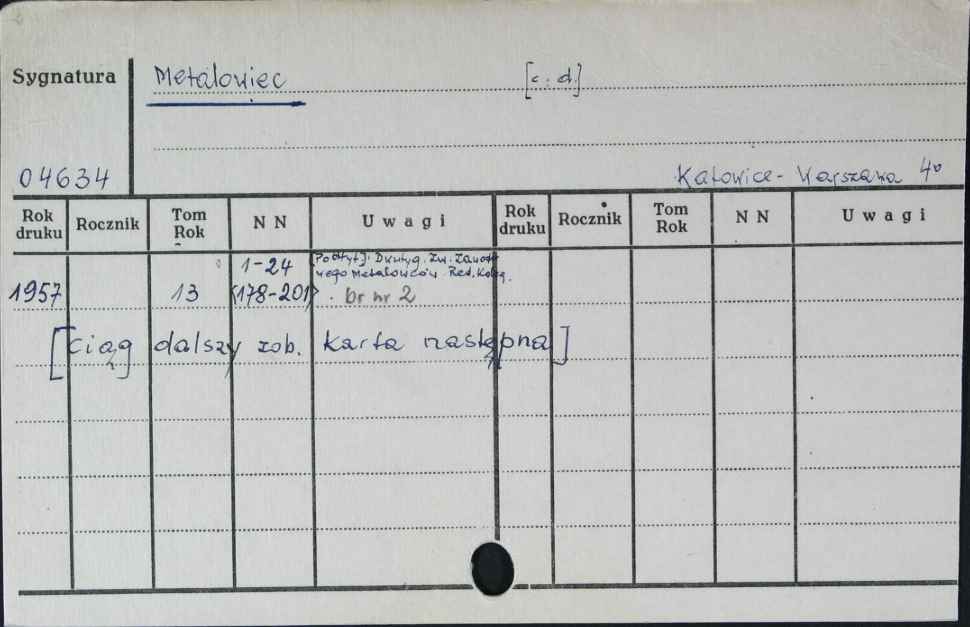 Sygnatura Metalowiec [c.d.]
04634 Katowice-Warszawa 4º
Rok druku Rocznik Tom Rok NN Uwagi Rok druku Rocznik Tom Rok NN Uwagi
1-24 [Podtyt]: Dwutyg. Zw. Zawodo
wego Metalowców. Red. Koleg.
1957 13 (178-201) . br nr 2
[ciąg dalszy zob. karta następna]